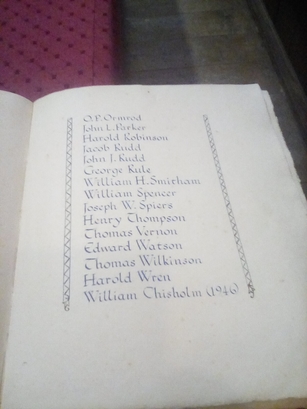 O.P. Ormrod
John L. Parker
Harold Robinson
Jacob Rudd
John J. Rudd
George Rule
William H. Smirham
William Spencer
Joseph W. Spiers
Henry Thompson
Thomas Vernon
Edward Watson
Thomas Wilkinson
Harold Wren
William Chisholm (1946)